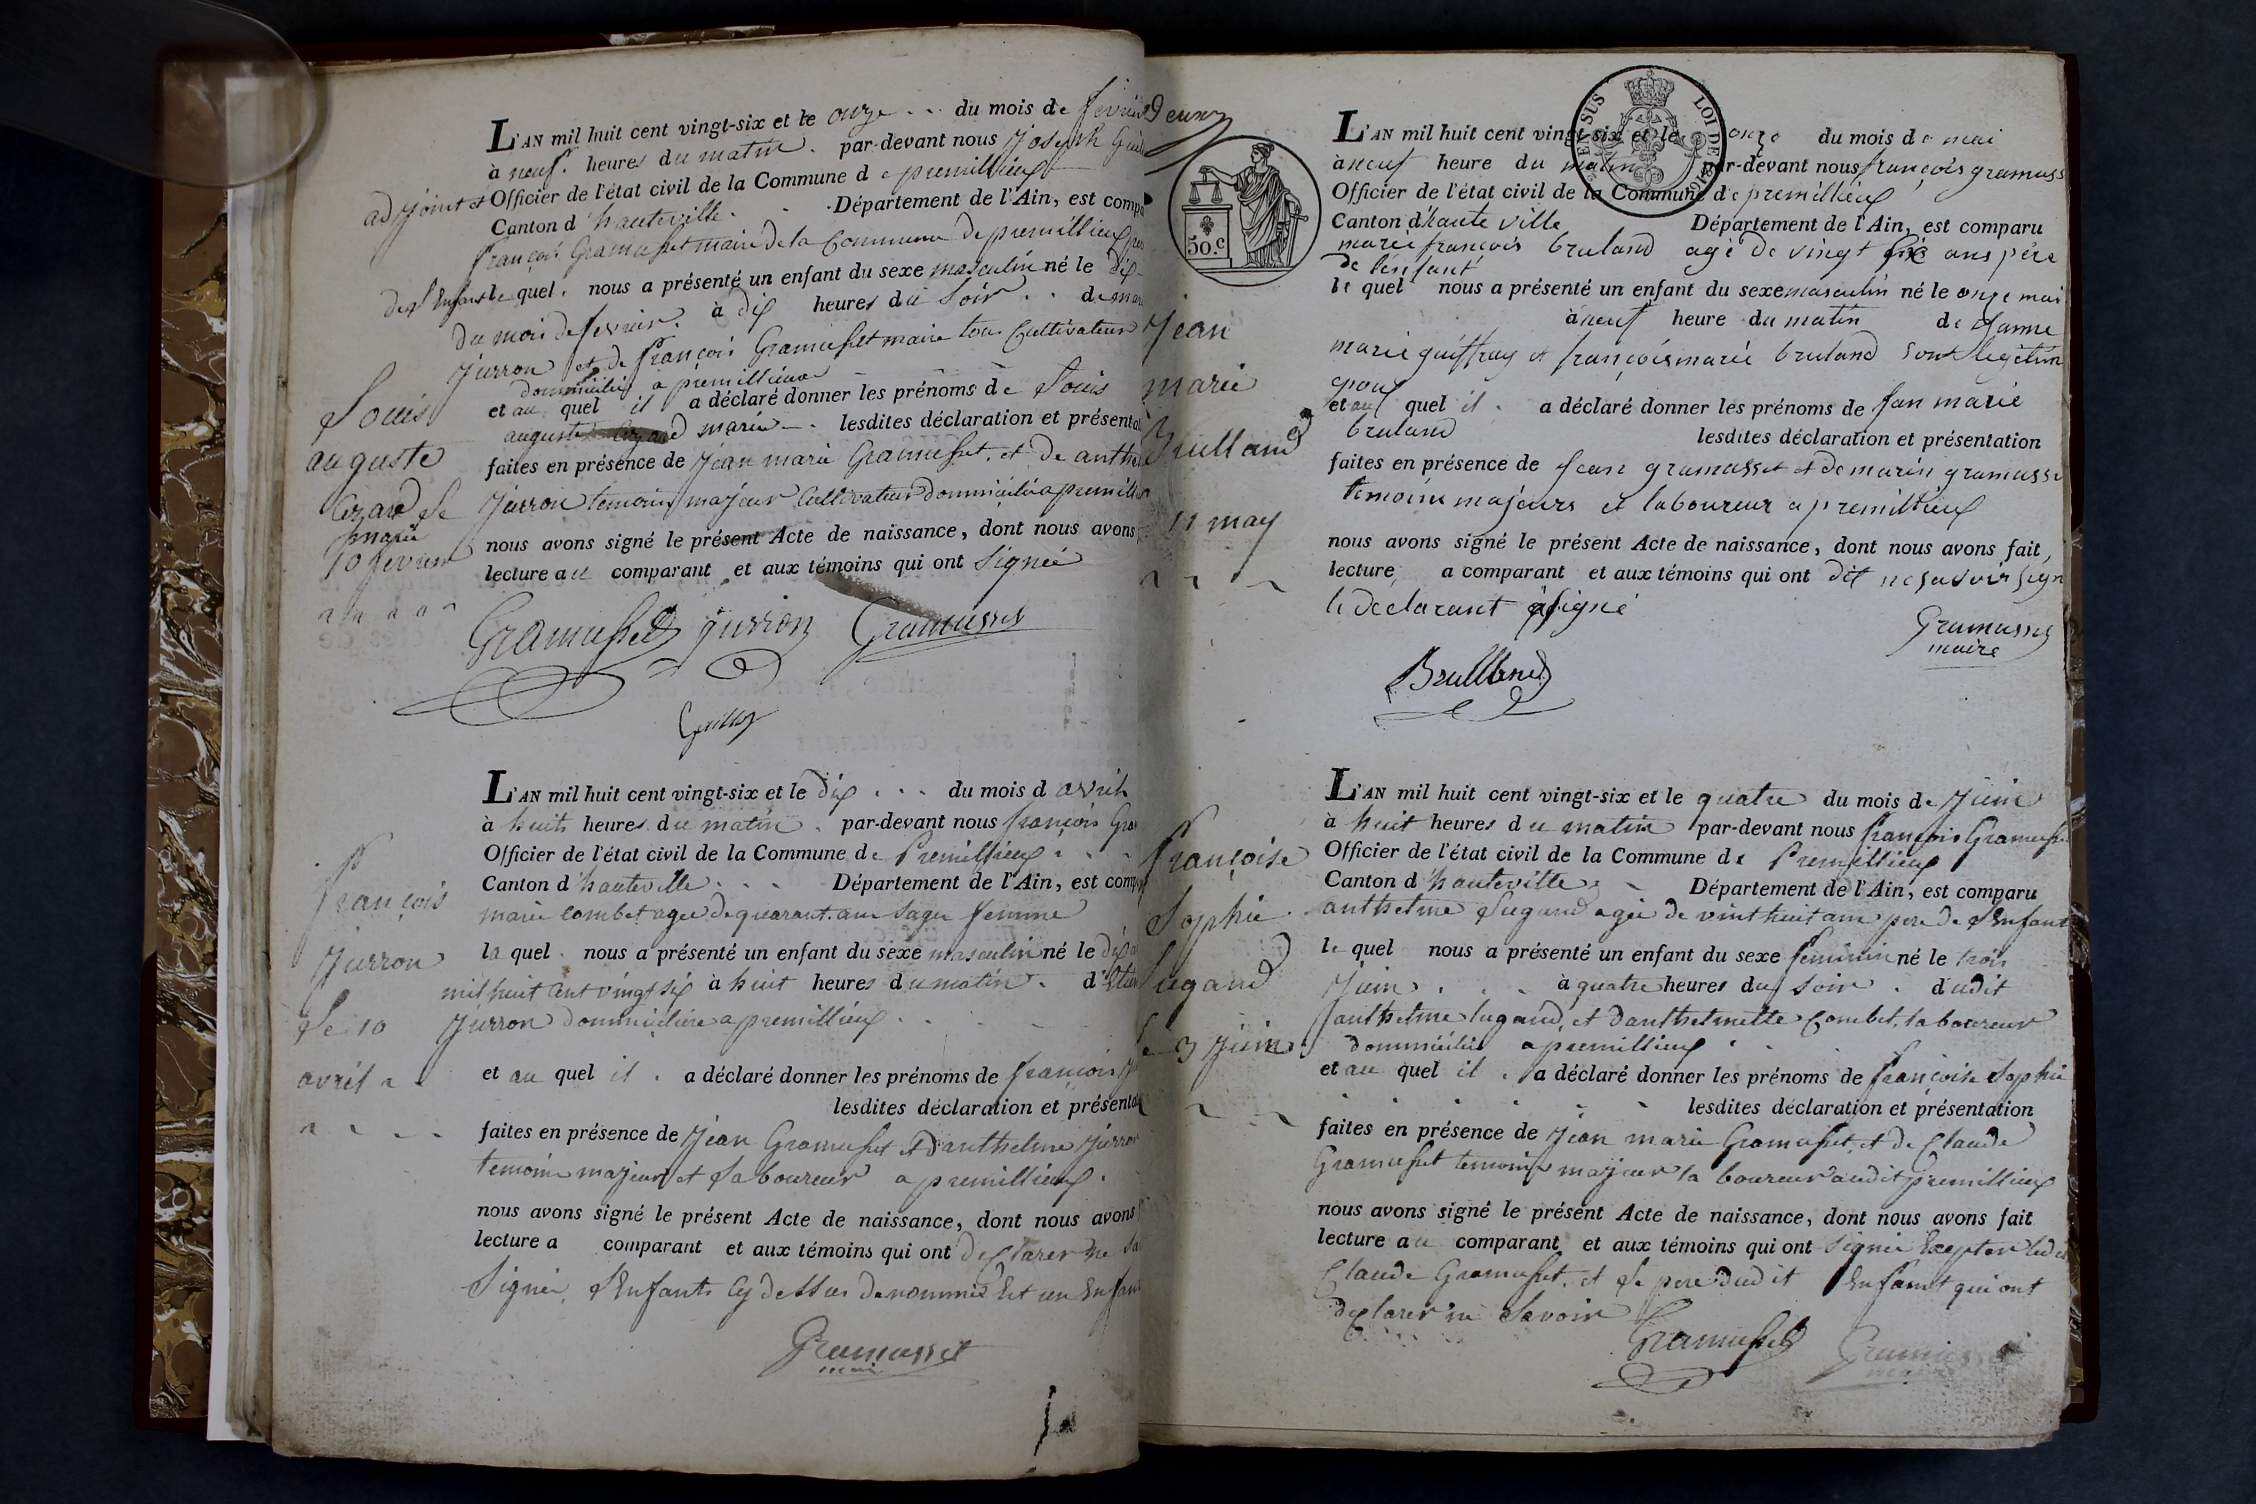 L'AN mil huit cent vingt-six et le onze du mois de fevrier
à neuf heures du matin par-devant nous Joseph
adjoint et Officier de l'état civil de la Commune de premillieux
Canton d'hauteville. Département de l'Ain, est
françois Gramusset maire de la Commune de premillieux
de l'Enfant le quel nous a présenté un enfant du sexe masculin né le dix
du mois de fevrier à dix heures du Soir de
Jurron et de françois Gramusset maire tous Cultivateurs
domiciliés a premillieux
et au quel il a déclaré donner les prénoms de Louis
auguste marie lesdites déclaration et
faites en présence de Jean marie Gramusset et de
Jurron temoins majeur Cultivateur domicilié a
nous avons signé le présent Acte de naissance, dont nous avons
lecture au comparant et aux témoins qui ont Signée
Louis
auguste
le
marie
10 fevrier
Gramusset Jurron Gramusset
L'AN mil huit cent vingt-six et le dix du mois d avril
à huit heures du matin par-devant nous françois
Officier de l'état civil de la Commune de Premillieux
Canton d'hauteville Département de l'Ain, est
marie Combet agee de quarant ans Sage femme
la quel nous a présenté un enfant du sexe masculin né le
mil huit cent vingt six à huit heures du matin
Jurron domiciliere a premillieux
et au quel il a déclaré donner les prénoms de françois
lesdites déclaration et
faites en présence de Jean Gramusset et d'anthelme Jurron
temoins majeur et Laboureur a premillieux
nous avons signé le présent Acte de naissance, dont nous avons
lecture a comparant et aux témoins qui ont declarer ne
Signer, l'Enfants cy dessus denommé Est un
François
Jurron
Le 10
avril
Gramusset
maire
Deux
EN SUS LOI DE
50.c
L'AN mil huit cent vingt-six et le onze du mois de mai
à neuf heure du matin par-devant nous françois gramuss
Officier de l'état civil de la Commune de premillieux
Canton d'haute ville Département de l'Ain, est comparu
marie françois bruland agé de vingt six ans père
de l'enfant
le quel nous a présenté un enfant du sexe masculin né le onze mai
à neuf heure du matin de
marie guiffray et françois marie bruland sont legitim
epoux
et au quel il a déclaré donner les prénoms de Jan marie
bruland lesdites déclaration et présentation
faites en présence de Jean gramusset et de marin gramusse
temoins majeurs et laboureur a premillieux
nous avons signé le présent Acte de naissance, dont nous avons fait
lecture a comparant et aux témoins qui ont dit ne savoir sign
le declarant a signé
Jean
marie
Brulland
11 may
Gramusset
maire
Brulland
L'AN mil huit cent vingt-six et le quatre du mois de Juin
à huit heures du matin par-devant nous françois Gramusse
Officier de l'état civil de la Commune de Premillieux
Canton d'hauteville Département de l'Ain, est comparu
anthelme Lugand agée de vint huit ans pere de l'Enfant
le quel nous a présenté un enfant du sexe feminin né le trois
Juin à quatre heures du Soir dudit
anthelme lugand, et d'anthelmette Combet, laboureur
domiciliés a premillieux
et au quel il a déclaré donner les prénoms de françoise Sophie
lesdites déclaration et présentation
faites en présence de Jean marie Gramusset, et de Claude
Gramusset temoins majeur laboureur audit premillieux
nous avons signé le présent Acte de naissance, dont nous avons fait
lecture au comparant et aux témoins qui ont Signée Excepter
Claude Gramusset, et le pere dudit Enfant qui ont
declarer ne Savoir
Françoise
Sophie
Lugand
Le 3 Juin
Gramusset Gramusset